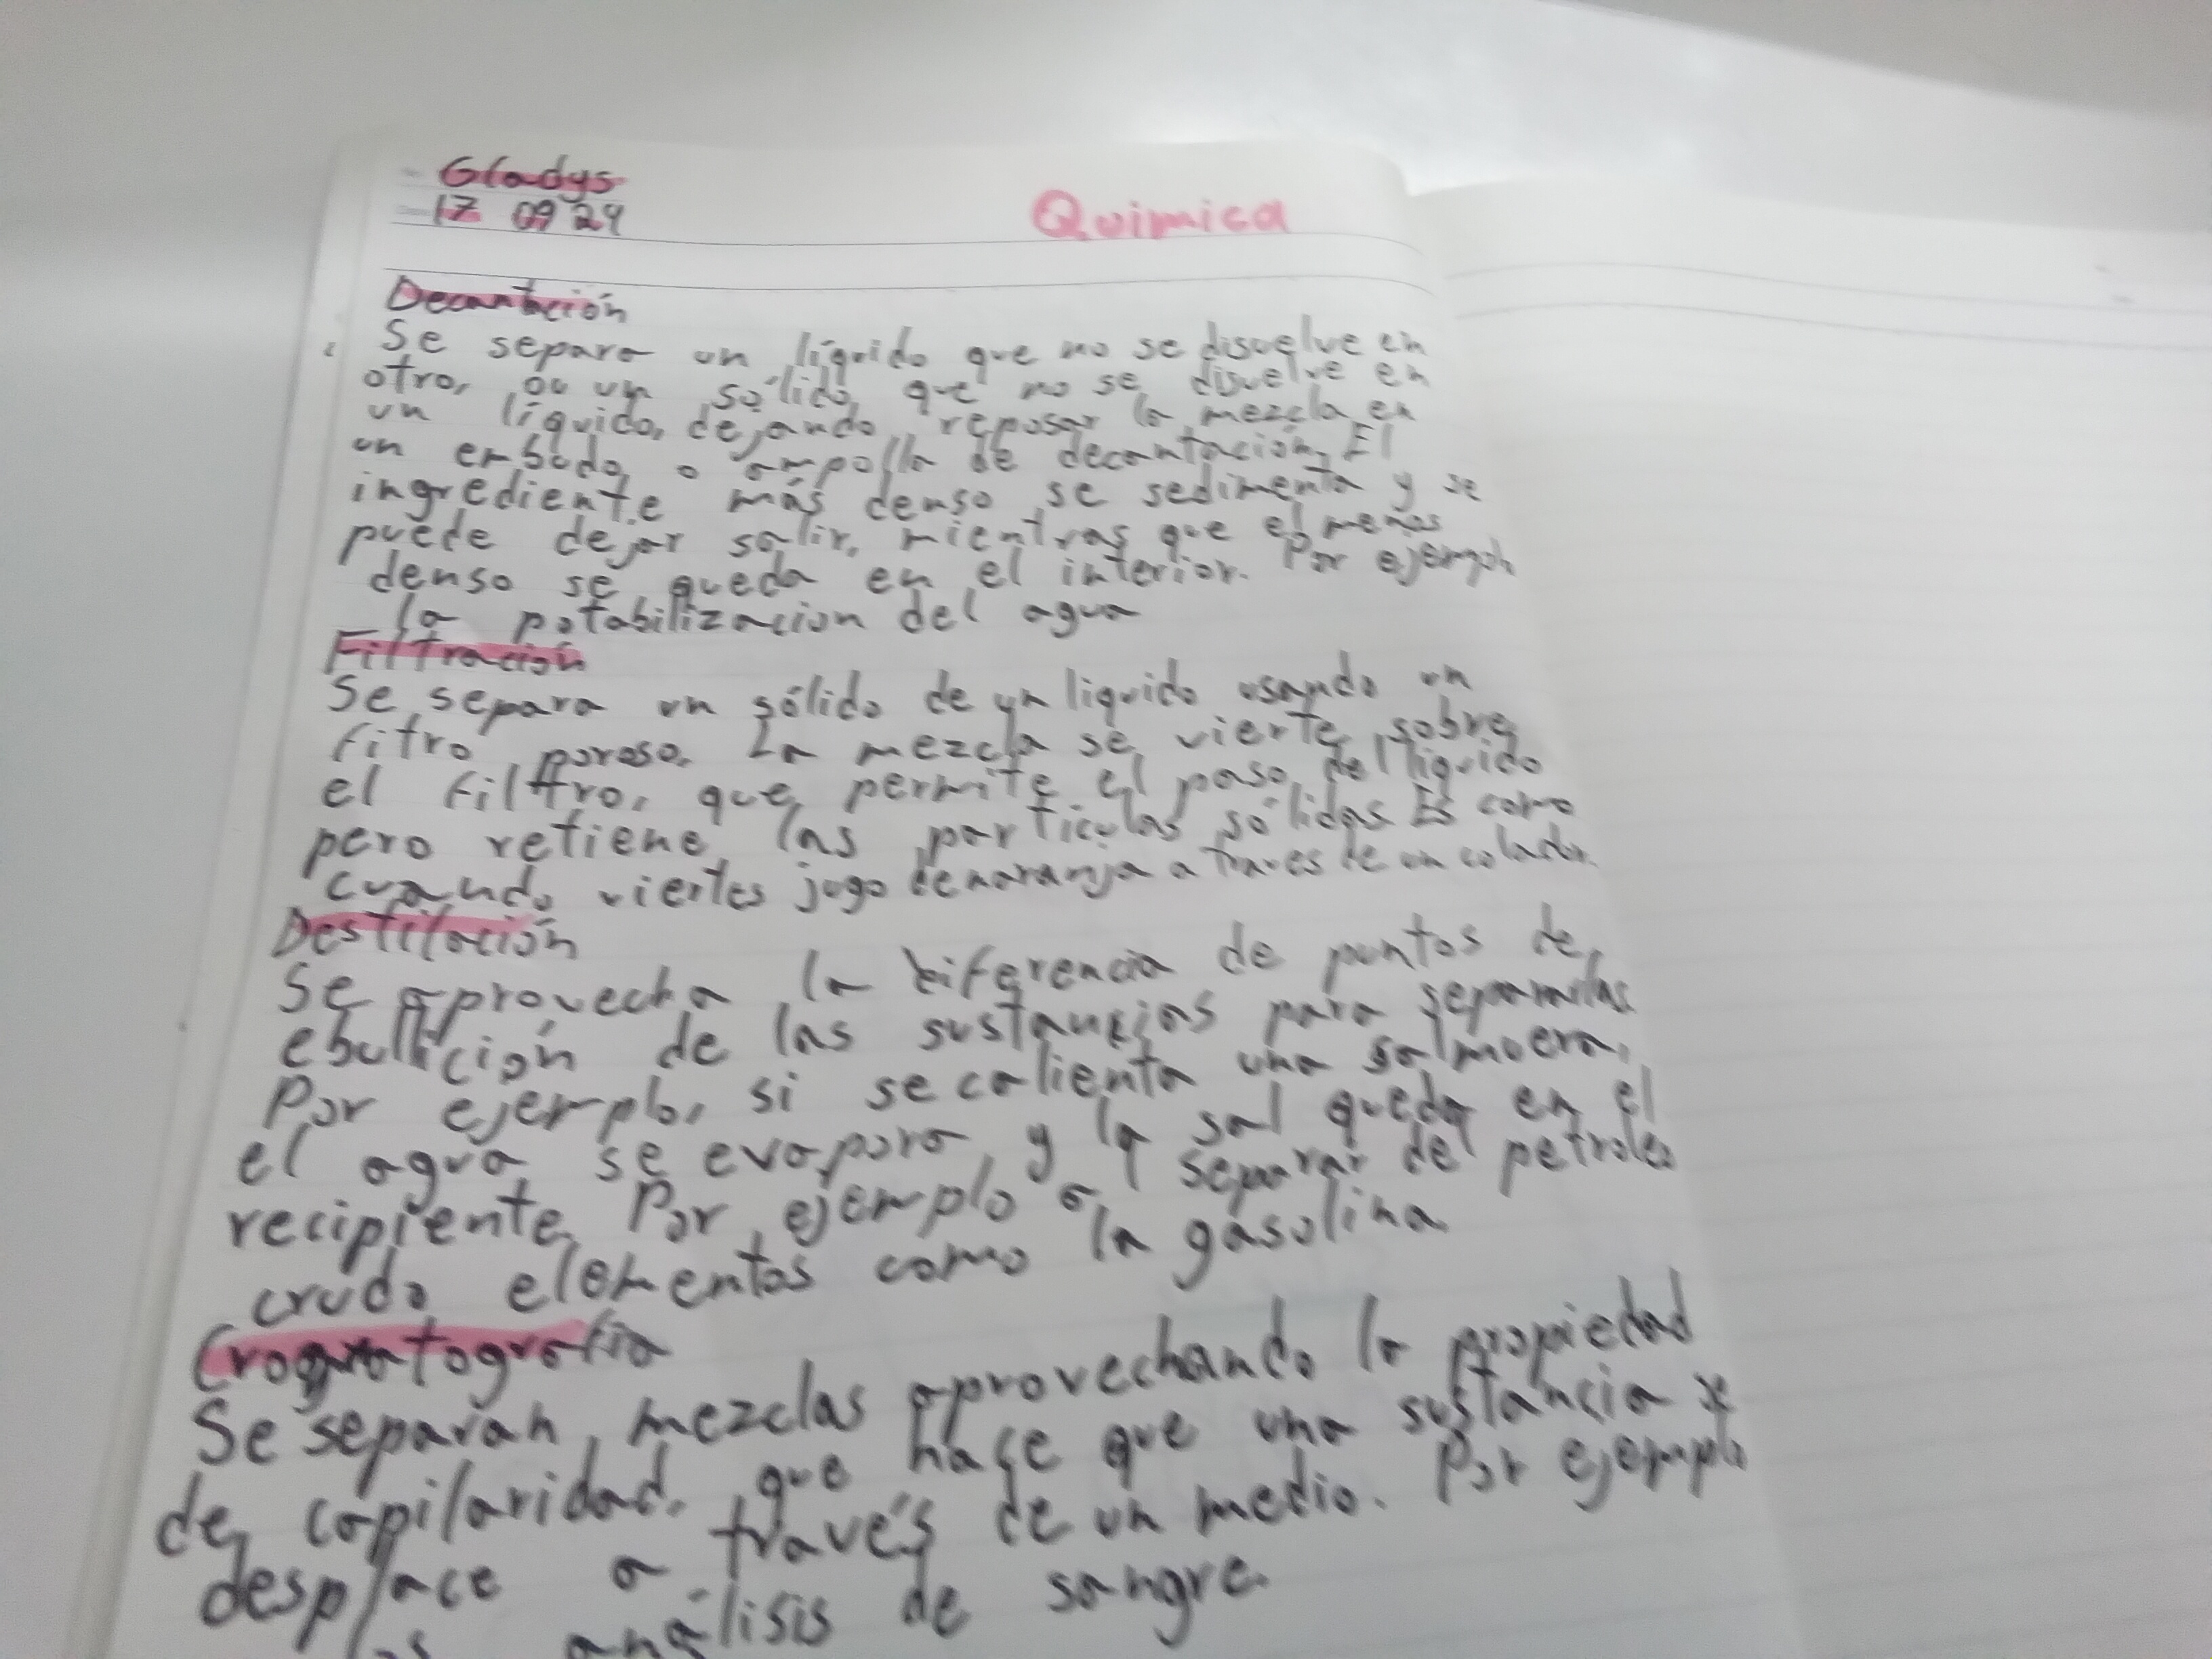 Gladys
17 09 24
Quimica
Decantación
Se separa un líquido que no se disuelve en
otro, ou un sólido que no se disuelve en
un líquido, dejando reposar la mezcla en
un embudo o ampolla de decantación. El
ingrediente más denso se sedimenta y se
puede dejar salir, mientras que el menos
denso se queda en el interior. Por ejemplo
la potabilizacion del agua
Filtración
Se separa un sólido de un liquido usando un
fitro poroso. La mezcla se vierte sobre
el filtro, que permite el paso del liquido
pero retiene las particulas sólidas Es como
cuando viertes jugo de naranja a traves de un colador.
Destilación
Se aprovecha la diferencia de puntos de
ebullición de las sustancias para separarlas
Por ejemplo, si se calienta una salmuera,
el agua se evapora y la sal queda en el
recipiente. Por ejemplo a separar del petroleo
crudo elementos como la gasolina
Crogmatografia
Se separan mezclas aprovechando la propiedad
de capilaridad, que hace que una sustancia se
desplace a través de un medio. Por ejemplo
análisis de sangre.